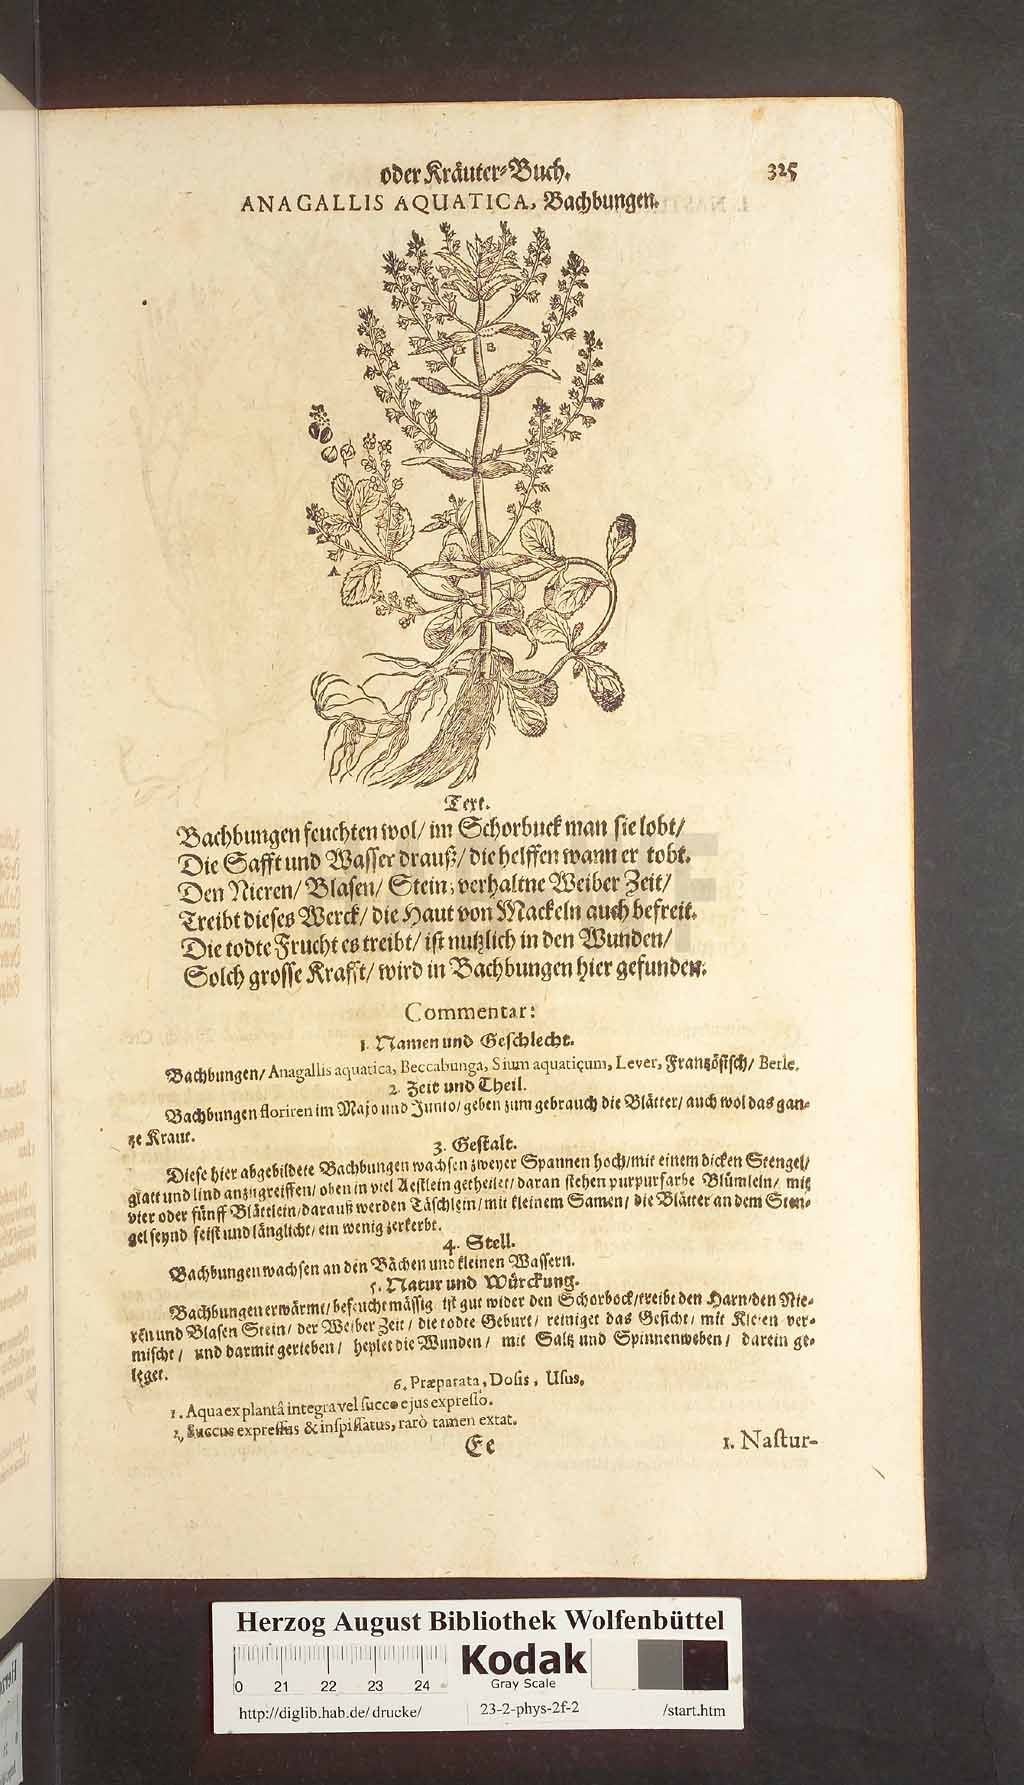 oder Kräuter-Buch. 325
ANAGALLIS AQUATICA, Bachbungen.
B
A
Text.
Bachbungen feuchten wol/ im Schorbuck man sie lobt/
Die Safft und Wasser drauß/ die helffen wann er tobt.
Den Nieren/ Blasen/ Stein; verhaltne Weiber Zeit/
Treibt dieses Werck/ die Haut von Mackeln auch befreit.
Die todte Frucht es treibt/ ist nutzlich in den Wunden/
Solch grosse Krafft/ wird in Bachbungen hier gefunden.
Commentar:
1. Namen und Geschlecht.
Bachbungen/ Anagallis aquatica, Beccabunga, Sium aquaticum, Lever, Französisch/ Berle.
2. Zeit und Theil.
Bachbungen floriren im Majo und Junio/ geben zum gebrauch die Blätter/ auch wol das gan-
tze Kraut.
3. Gestalt.
Diese hier abgebildete Bachbungen wachsen zweyer Spannen hoch/ mit einem dicken Stengel/
glatt und lind anzugreiffen/ oben in viel Aestlein getheilet/ daran stehen purpurfarbe Blümlein/ mit
vier oder fünff Blättlein/ darauß werden Täschlein/ mit kleinem Samen/ die Blätter an dem Sten-
gel seynd feist und länglicht/ ein wenig zerkerbt.
4. Stell.
Bachbungen wachsen an den Bächen und kleinen Wassern.
5. Natur und Würckung.
Bachbungen erwärmt/ befeucht mässig ist gut wider den Schorbock/ treibt den Harn/ den Nie-
ren und Blasen Stein/ der Weiber Zeit/ die todte Geburt/ reiniget das Gesicht/ mit Kleien ver-
mischt/ und darmit gerieben/ heylet die Wunden/ mit Saltz und Spinnenweben/ darein ge-
leget.
6. Præparata, Dosis, Usus.
1. Aqua ex plantâ integra vel succo ejus expresso.
2. Succus expressus & inspissatus, rarò tamen extat.
Ee 1. Nastur-
Herzog August Bibliothek Wolfenbüttel
Kodak
Gray Scale
0 21 22 23 24
http://diglib.hab.de/drucke/ 23-2-phys-2f-2 /start.htm